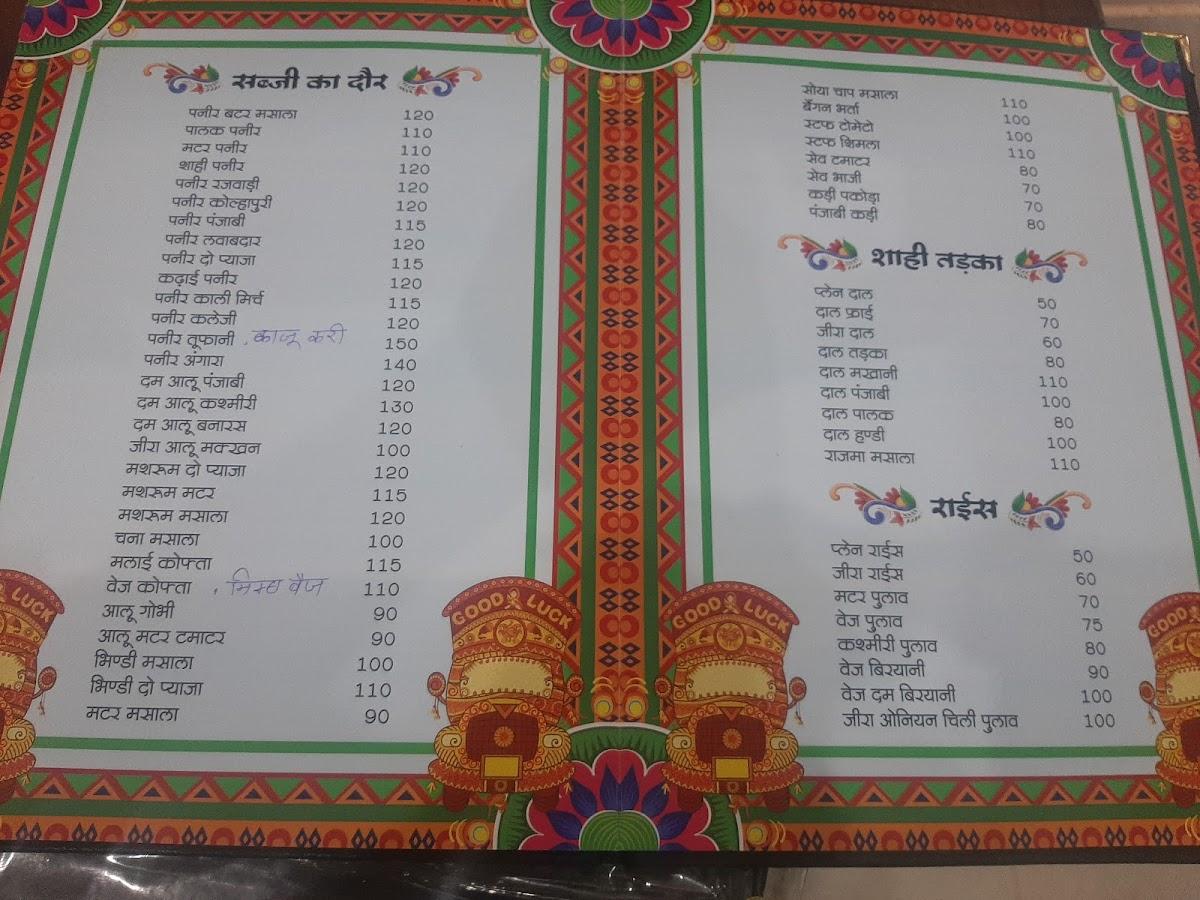 सब्जी का दौर
पनीर बटर मसाला 120
पालक पनीर 110
मटर पनीर 110
शाही पनीर 120
पनीर रजवाड़ी 120
पनीर कोल्हापुरी 120
पनीर पंजाबी 115
पनीर लवाबदार 120
पनीर दो प्याजा 115
कढ़ाई पनीर 120
पनीर काली मिर्च 115
पनीर कलेजी 120
पनीर तूफानी , काजू करी 150
पनीर अंगारा 140
दम आलू पंजाबी 120
दम आलू कश्मीरी 130
दम आलू बनारस 120
जीरा आलू मक्खन 100
मशरूम दो प्याजा 120
मशरूम मटर 115
मशरूम मसाला 120
चना मसाला 100
मलाई कोफ्ता 115
वेज कोफ्ता , मिक्स वेज 110
आलू गोभी 90
आलू मटर टमाटर 90
भिण्डी मसाला 100
भिण्डी दो प्याजा 110
मटर मसाला 90
GOOD LUCK
सोया चाप मसाला 110
बैंगन भर्ता 100
स्टफ टोमेटो 100
स्टफ शिमला 110
सेव टमाटर 80
सेव भाजी 70
कड़ी पकोड़ा 70
पंजाबी कड़ी 80
शाही तड़का
प्लेन दाल 50
दाल फ्राई 70
जीरा दाल 60
दाल तड़का 80
दाल मखानी 110
दाल पंजाबी 100
दाल पालक 80
दाल हण्डी 100
राजमा मसाला 110
राईस
प्लेन राईस 50
जीरा राईस 60
मटर पुलाव 70
वेज पुलाव 75
कश्मीरी पुलाव 80
वेज बिरयानी 90
वेज दम बिरयानी 100
जीरा ओनियन चिली पुलाव 100
GOOD LUCK
GOOD LUCK
LUCK